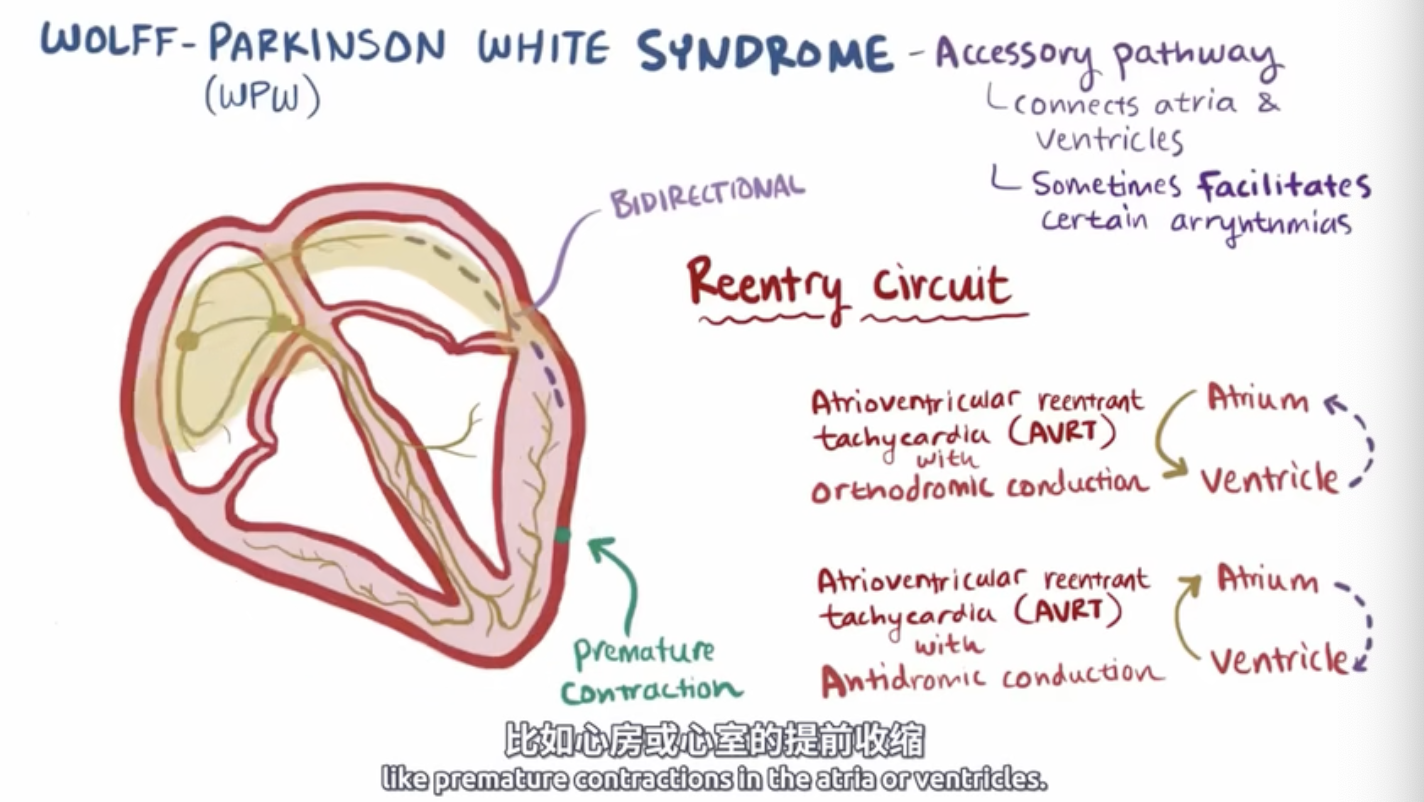 WOLFF-PARKINSON WHITE SYNDROME - Accessory pathway
(WPW)
connects atria &
ventricles
Sometimes facilitates
certain arryhthmias
BIDIRECTIONAL
Reentry circuit
Atrioventricular reentrant
tachycardia (AVRT)
with
orthodromic conduction
Atrium
Ventricle
Atrioventricular reentrant
tachycardia (AVRT)
with
Antidromic conduction
Atrium
Ventricle
Premature
Contraction
比如心房或心室的提前收缩
like premature contractions in the atria or ventricles.